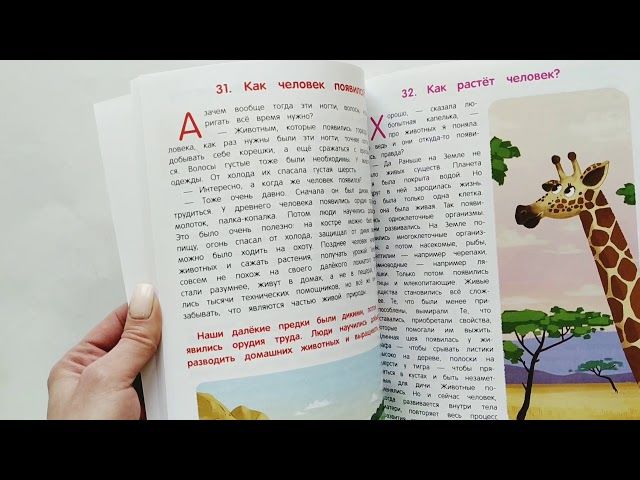 31. Как человек появился?
А зачем вообще тогда эти ногти, волосы
ригать всё время нужно?
— Животным, которые появились
ловека, как раз нужны были эти ногти, точнее
добывать себе корешки, а ещё сражаться с
ся. Волосы густые тоже были необходимы. У
одежды. От холода их спасала густая шерсть.
— Интересно, а когда же человек появился?
— Тоже очень давно. Сначала он был диким,
трудиться. У древнего человека появились орудия
молоток, палка-копалка. Потом люди научились
Это было очень полезно: на костре можно бы
пищу, огонь спасал от холода, защищал от дик
можно было ходить на охоту. Позднее человек
животных и сажать растения, получать урожай.
совсем не похож на своего далёкого предка.
стали разумнее, живут в домах, а не в пещерах,
лись тысячи технических помощников, но всё же
забывать, что являются частью живой природы.
Наши далёкие предки были дикими, потом
явились орудия труда. Люди научились
разводить домашних животных и выращивать
32. Как растёт человек?
Хорошо, — сказала лю-
бопытная капелька, —
про животных я поняла.
ведь и они откуда-то появи-
лись, правда?
— Да. Раньше на Земле не
живых существ. Планета
покрыта водой. Но
в ней зародилась жизнь.
была только одна клетка.
она была живая. Так появи-
одноклеточные организмы.
развивались. На Земле по-
многоклеточные организмы,
а потом насекомые, рыбы,
— например черепахи,
новодные — например ля-
Только потом появились
и млекопитающие. Живые
щества становились всё слож-
Те, что были менее при-
способлены, вымирали. Те, что
ставались, приобретали свойства,
которые помогали им выжить.
длинная шея появилась у жи-
рафа — чтобы срывать листики
высоко на дереве, полоски на
шерсти у тигра — чтобы пря-
таться в кустах и быть незамет-
ным для дичи. Животные по-
менялись. Но и сейчас человек,
когда развивается внутри тела
матери, повторяет весь процесс
развития